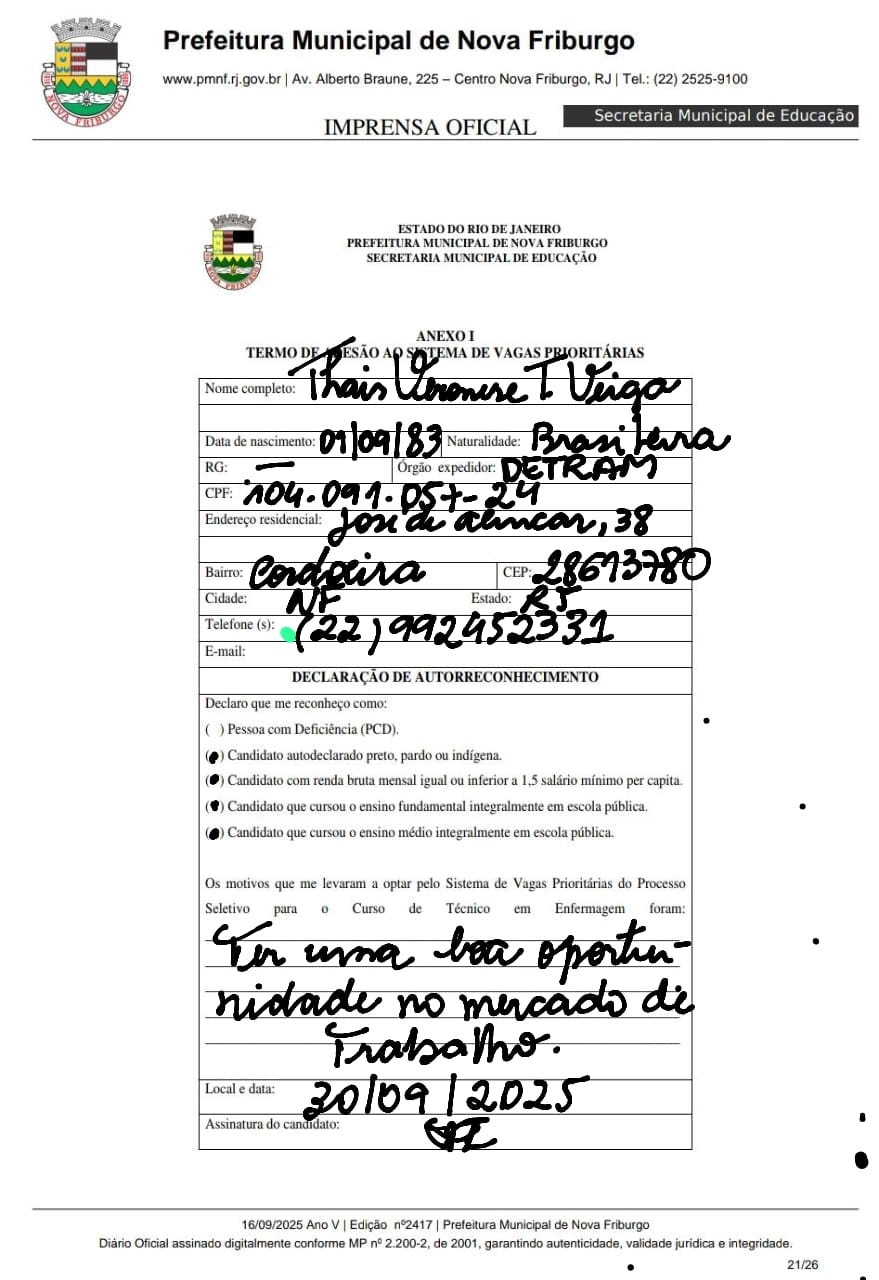 Prefeitura Municipal de Nova Friburgo
www.pmnf.rj.gov.br | Av. Alberto Braune, 225 – Centro Nova Friburgo, RJ | Tel.: (22) 2525-9100
IMPRENSA OFICIAL
Secretaria Municipal de Educação
NOVA FRIBURGO
ESTADO DO RIO DE JANEIRO
PREFEITURA MUNICIPAL DE NOVA FRIBURGO
SECRETARIA MUNICIPAL DE EDUCAÇÃO
NOVA FRIBURGO
ANEXO I
TERMO DE ADESÃO AO SISTEMA DE VAGAS PRIORITÁRIAS
Nome completo: Thais Veronese T. Veiga
Data de nascimento: 01/09/83 Naturalidade: Brasileira
RG: — Órgão expedidor: DETRAM
CPF: 104.091.057-24
Endereço residencial: José de Alencar, 38
Bairro: Cordoeira CEP: 28613780
Cidade: NF Estado: RJ
Telefone (s): (22) 992452331
E-mail:
DECLARAÇÃO DE AUTORRECONHECIMENTO
Declaro que me reconheço como:
( ) Pessoa com Deficiência (PCD).
(●) Candidato autodeclarado preto, pardo ou indígena.
(●) Candidato com renda bruta mensal igual ou inferior a 1,5 salário mínimo per capita.
(●) Candidato que cursou o ensino fundamental integralmente em escola pública.
(●) Candidato que cursou o ensino médio integralmente em escola pública.
Os motivos que me levaram a optar pelo Sistema de Vagas Prioritárias do Processo
Seletivo para o Curso de Técnico em Enfermagem foram:
Ter uma boa oportu-
nidade no mercado de
Trabalho.
Local e data: 30/09/2025
Assinatura do candidato:
16/09/2025 Ano V | Edição nº2417 | Prefeitura Municipal de Nova Friburgo
Diário Oficial assinado digitalmente conforme MP nº 2.200-2, de 2001, garantindo autenticidade, validade jurídica e integridade.
21/26